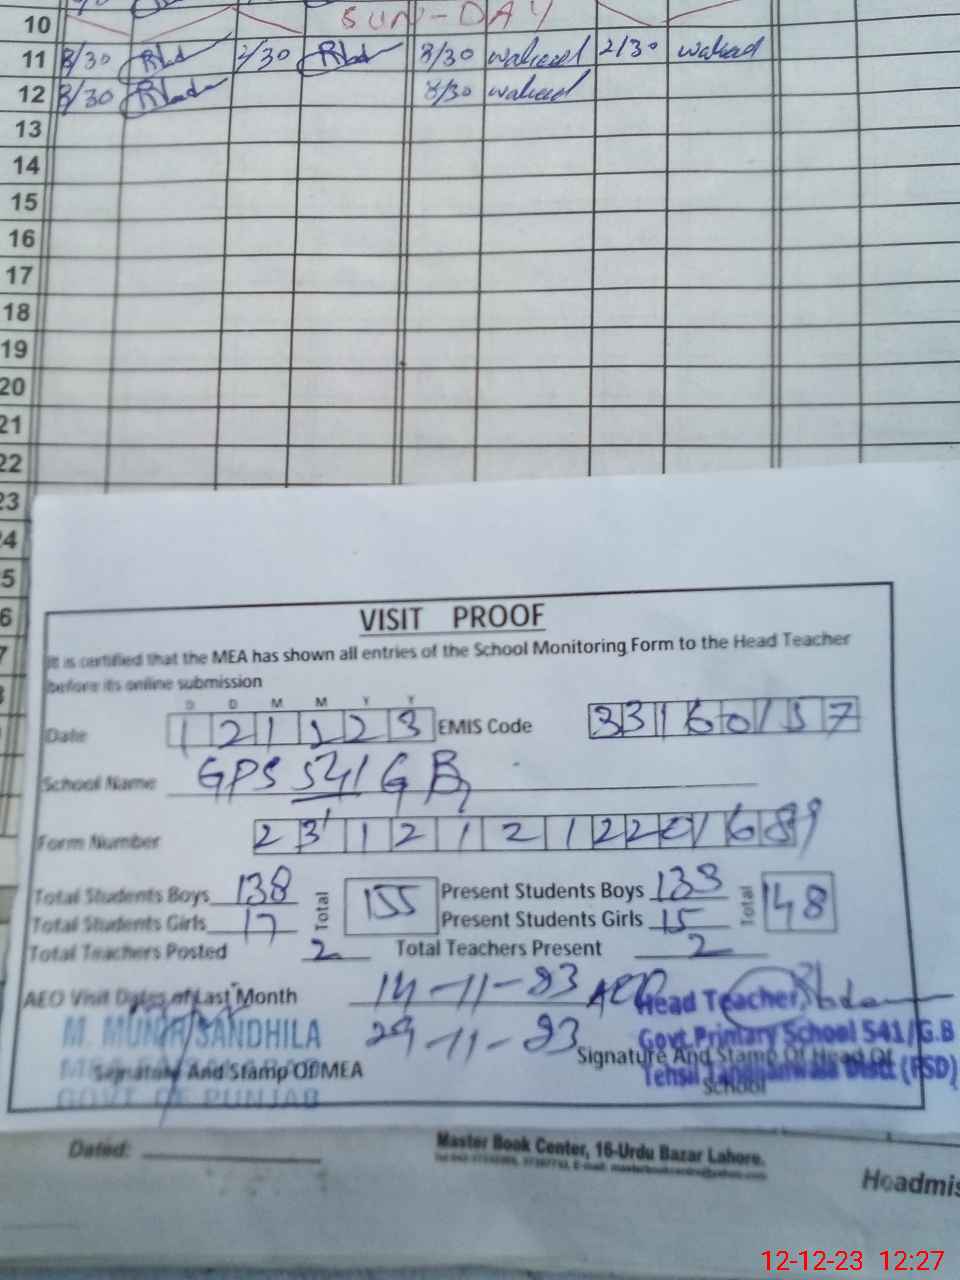 10 SUN-DAY
11 8/30 2/30 8/30 waheed 2/30 waheed
12 8/30 8/30 waheed
13
14
15
16
17
18
19
20
21
22
23
24
5
6
7
VISIT PROOF
It is certified that the MEA has shown all entries of the School Monitoring Form to the Head Teacher
before its online submission
D D M M Y Y
Date 1 2 1 2 2 3 EMIS Code 3 3 1 6 0 1 5 7
School Name GPS 541 GB
Form Number
Total Students Boys 138 Total 155 Present Students Boys 133 Total 148
Total Students Girls 17 Present Students Girls 15
Total Teachers Posted 2 Total Teachers Present 2
AEO Visit Dates of Last Month 14-11-23 AEO Head Teacher
M. MUNIR SANDHILA 29-11-23 Govt. Primary School 541/G.B
Signature And Stamp Of Head Of
Signature And Stamp Of MEA Tehsil Tandlianwala Distt (FSD)
School
GOVT OF PUNJAB
Dated: Master Book Center, 16-Urdu Bazar Lahore.
Headmis
12-12-23 12:27